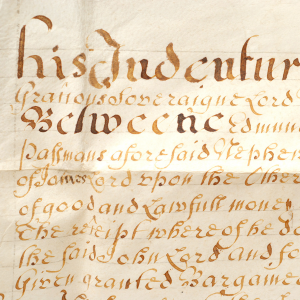 his Indentur
Gratious Soveraigne Lord
Betweene Edmun
Passmans aforesaid Stephen
of James Lord upon the Other
of good and Lawfull money
The receipt whereof he do
the said John Lord and
Given granted Bargame